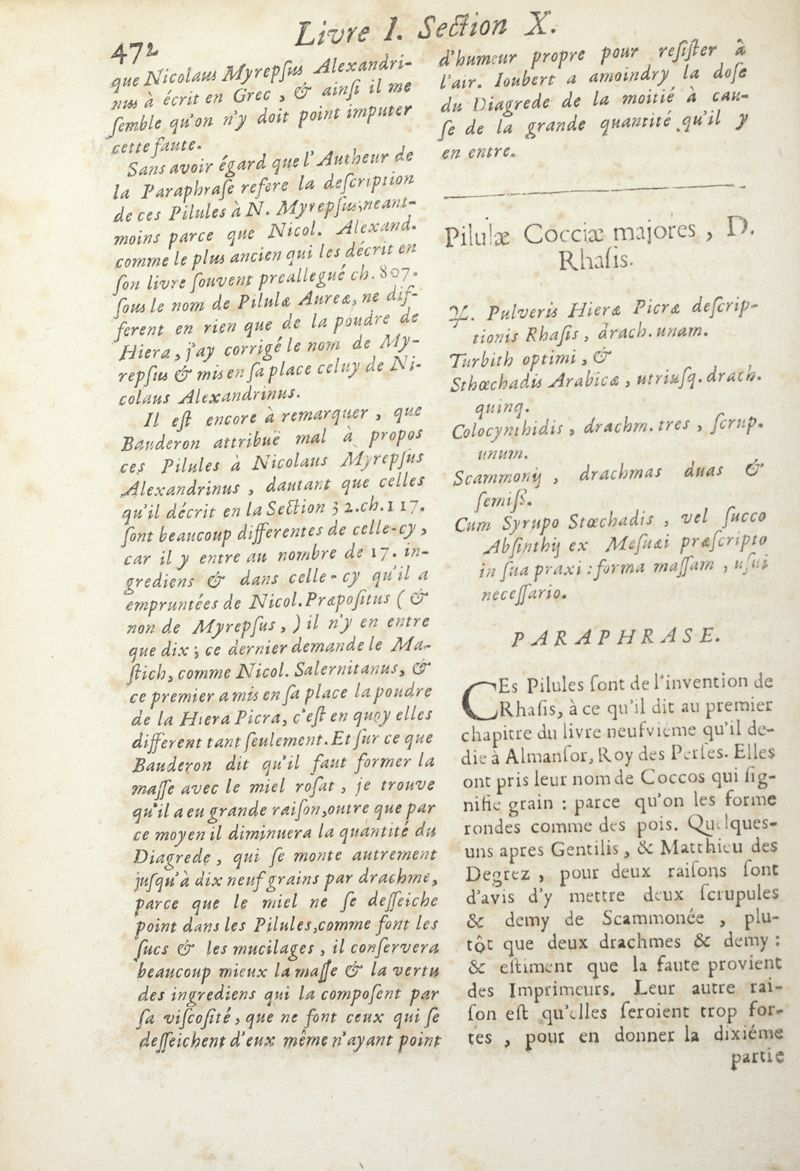 472
Livre I. Section X.
que Nicolaus Myrepſus Alexandri-
nus à écrit en Grec, & ainſi il me
ſemble qu'on n'y doit point imputer
cette faute.
Sans avoir égard que l'Autheur de
la Paraphraſe refere la deſcription
de ces Pilules à N. Myrepſus, neant-
moins parce que Nicol. Alexand.
comme le plus ancien qui les décrit en
ſon livre ſouvent preallegué ch. 807.
ſous le nom de Pilulæ Aureæ, ne dif-
ferent en rien que de la poudre de
Hiera, j'ay corrigé le nom de My-
repſus & mis en ſa place celuy de Ni-
colaus Alexandrinus.
Il eſt encore à remarquer, que
Bauderon attribuë mal à propos
ces Pilules à Nicolaus Myrepſus
Alexandrinus, dautant que celles
qu'il décrit en la Section 32. ch. 117.
ſont beaucoup differentes de celle-cy,
car il y entre au nombre de 17. in-
grediens & dans celle-cy qu'il a
empruntées de Nicol. Præpoſitus (&
non de Myrepſus,) il n'y en entre
que dix; ce dernier demande le Ma-
ſtich, comme Nicol. Salernitanus, &
ce premier a mis en ſa place la poudre
de la Hiera Picra, c'eſt en quoy elles
different tant ſeulement. Et ſur ce que
Bauderon dit qu'il faut former la
maſſe avec le miel roſat, je trouve
qu'il a eu grande raiſon, outre que par
ce moyen il diminuera la quantité du
Diagrede, qui ſe monte autrement
juſqu'à dix neuf grains par drachme,
parce que le miel ne ſe deſſeiche
point dans les Pilules, comme font les
ſucs & les mucilages, il conſervera
beaucoup mieux la maſſe & la vertu
des ingrediens qui la compoſent par
ſa viſcoſité, que ne font ceux qui ſe
deſſeichent d'eux même n'ayant point
d'humeur propre pour reſiſter à
l'air. Ioubert a amoindry la doſe
du Diagrede de la moitié à cau-
ſe de la grande quantité qu'il y
en entre.
Pilulæ Cocciæ majores, D.
Rhaſis.
℞. Pulveris Hieræ Picræ deſcrip-
tionis Rhaſis, drach. unam.
Turbith optimi, &
Sthœchadis Arabicæ, utriuſq. drach.
quinq.
Colocynthidis, drachm. tres, ſcrup.
unum.
Scammonij, drachmas duas &
ſemiß.
Cum Syrupo Stœchadis, vel ſucco
Abſinthij ex Meſuæi præſcripto
in ſua praxi: forma maſſam, uſui
neceſſario.
PARAPHRASE.
CEs Pilules ſont de l'invention de
Rhaſis, à ce qu'il dit au premier
chapitre du livre neufviéme qu'il de-
die à Almanſor, Roy des Perſes. Elles
ont pris leur nom de Coccos qui ſig-
nifie grain : parce qu'on les forme
rondes comme des pois. Quelques-
uns apres Gentilis, & Matthieu des
Degrez, pour deux raiſons ſont
d'avis d'y mettre deux ſcrupules
& demy de Scammonée, plu-
tôt que deux drachmes & demy :
& eſtiment que la faute provient
des Imprimeurs. Leur autre rai-
ſon eſt qu'elles ſeroient trop for-
tes, pour en donner la dixiéme
partie